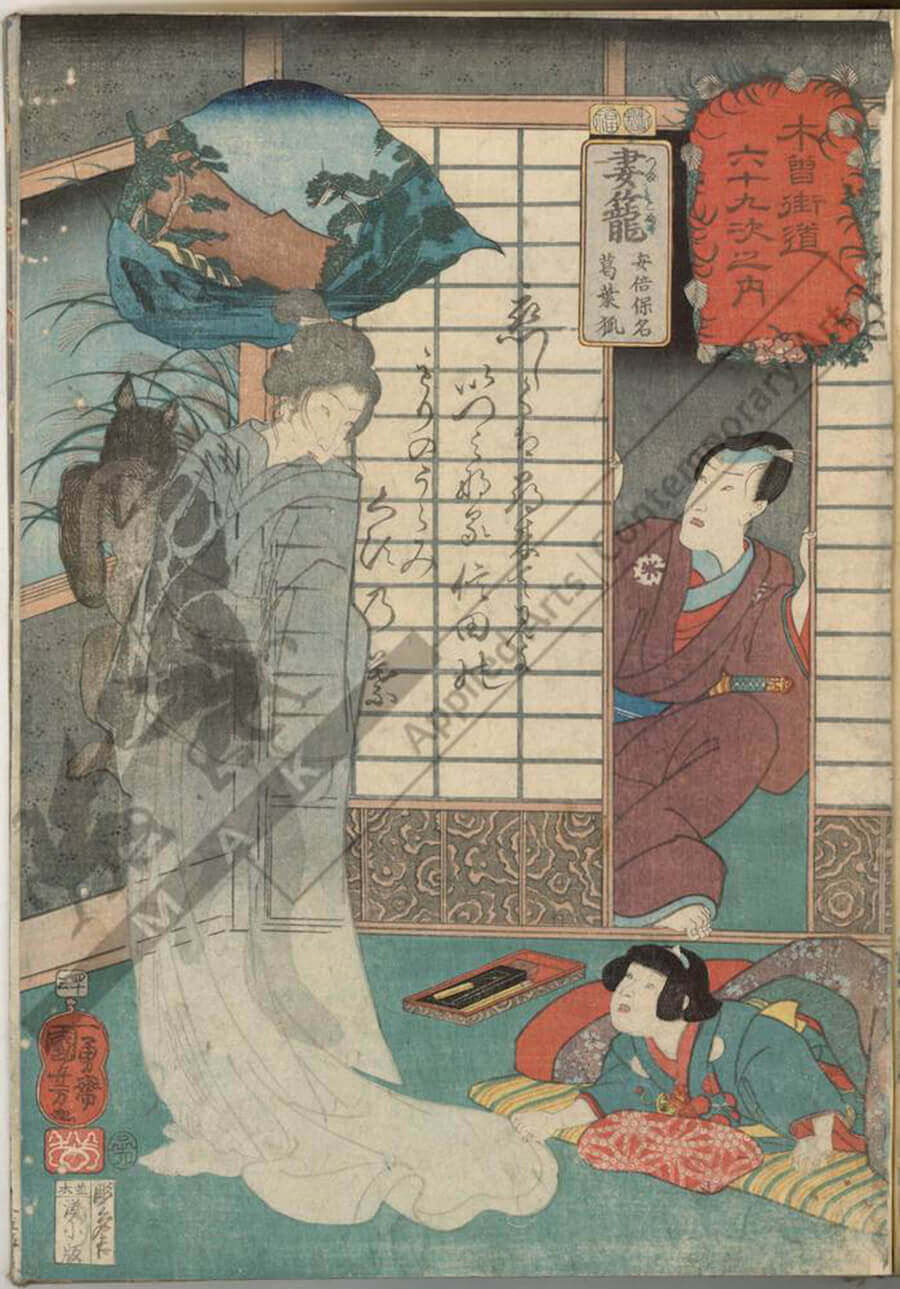 木曽街道
六十九次之内
福
妻籠
安倍保名
葛葉狐
恋しくは尋来て見よ
いつみなる信田の
もりのうらみ
くずの葉
一勇齋
國芳画
並木
湊小版
MAK Applied Arts | Contemporary Arts